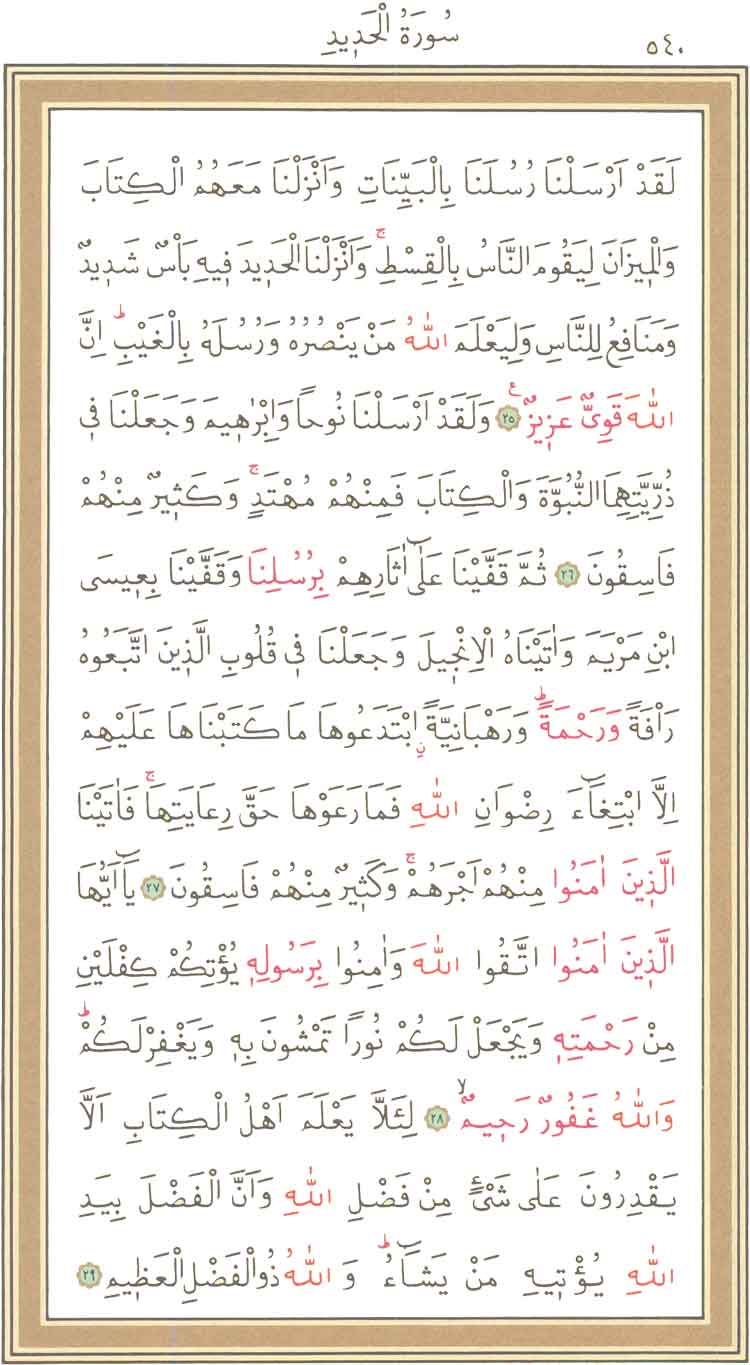 سُورَةُ الْحَدٖيدِ ٥٤٠
لَقَدْ اَرْسَلْنَا رُسُلَنَا بِالْبَيِّنَاتِ وَاَنْزَلْنَا مَعَهُمُ الْكِتَابَ
وَالْمٖيزَانَ لِيَقُومَ النَّاسُ بِالْقِسْطِۚ وَاَنْزَلْنَا الْحَدٖيدَ فٖيهِ بَاْسٌ شَدٖيدٌ
وَمَنَافِعُ لِلنَّاسِ وَلِيَعْلَمَ اللّٰهُ مَنْ يَنْصُرُهُ وَرُسُلَهُ بِالْغَيْبِؕ اِنَّ
اللّٰهَ قَوِىٌّ عَزٖيزٌࣖ ﴿٢٥﴾ وَلَقَدْ اَرْسَلْنَا نُوحاً وَاِبْرٰهٖيمَ وَجَعَلْنَا فٖى
ذُرِّيَّتِهِمَا النُّبُوَّةَ وَالْكِتَابَ فَمِنْهُمْ مُهْتَدٍۚ وَكَثٖيرٌ مِنْهُمْ
فَاسِقُونَ ﴿٢٦﴾ ثُمَّ قَفَّيْنَا عَلٰٓى اٰثَارِهِمْ بِرُسُلِنَا وَقَفَّيْنَا بِعٖيسَى
ابْنِ مَرْيَمَ وَاٰتَيْنَاهُ الْاِنْجٖيلَ وَجَعَلْنَا فٖى قُلُوبِ الَّذٖينَ اتَّبَعُوهُ
رَاْفَةً وَرَحْمَةًؕ وَرَهْبَانِيَّةًۨ ابْتَدَعُوهَا مَا كَتَبْنَاهَا عَلَيْهِمْ
اِلَّا ابْتِغَٓاءَ رِضْوَانِ اللّٰهِ فَمَا رَعَوْهَا حَقَّ رِعَايَتِهَاۚ فَاٰتَيْنَا
الَّذٖينَ اٰمَنُوا مِنْهُمْ اَجْرَهُمْۚ وَكَثٖيرٌ مِنْهُمْ فَاسِقُونَ ﴿٢٧﴾ يَٓا اَيُّهَا
الَّذٖينَ اٰمَنُوا اتَّقُوا اللّٰهَ وَاٰمِنُوا بِرَسُولِهٖ يُؤْتِكُمْ كِفْلَيْنِ
مِنْ رَحْمَتِهٖ وَيَجْعَلْ لَكُمْ نُوراً تَمْشُونَ بِهٖ وَيَغْفِرْ لَكُمْؕ
وَاللّٰهُ غَفُورٌ رَحٖيمٌۙ ﴿٢٨﴾ لِئَلَّا يَعْلَمَ اَهْلُ الْكِتَابِ اَلَّا
يَقْدِرُونَ عَلٰى شَىْءٍ مِنْ فَضْلِ اللّٰهِ وَاَنَّ الْفَضْلَ بِيَدِ
اللّٰهِ يُؤْتٖيهِ مَنْ يَشَٓاءُؕ وَاللّٰهُ ذُو الْفَضْلِ الْعَظٖيمِ ﴿٢٩﴾